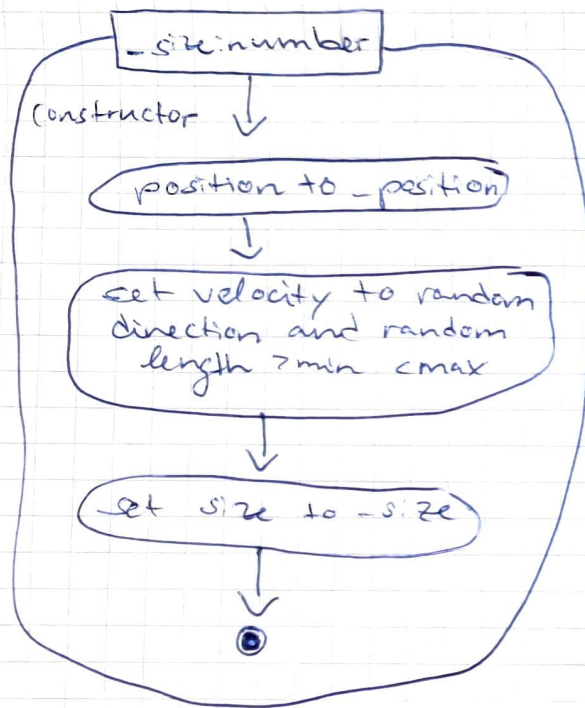 _size:number
constructor
position to _position
set velocity to random
direction and random
length >min <max
set size to _size